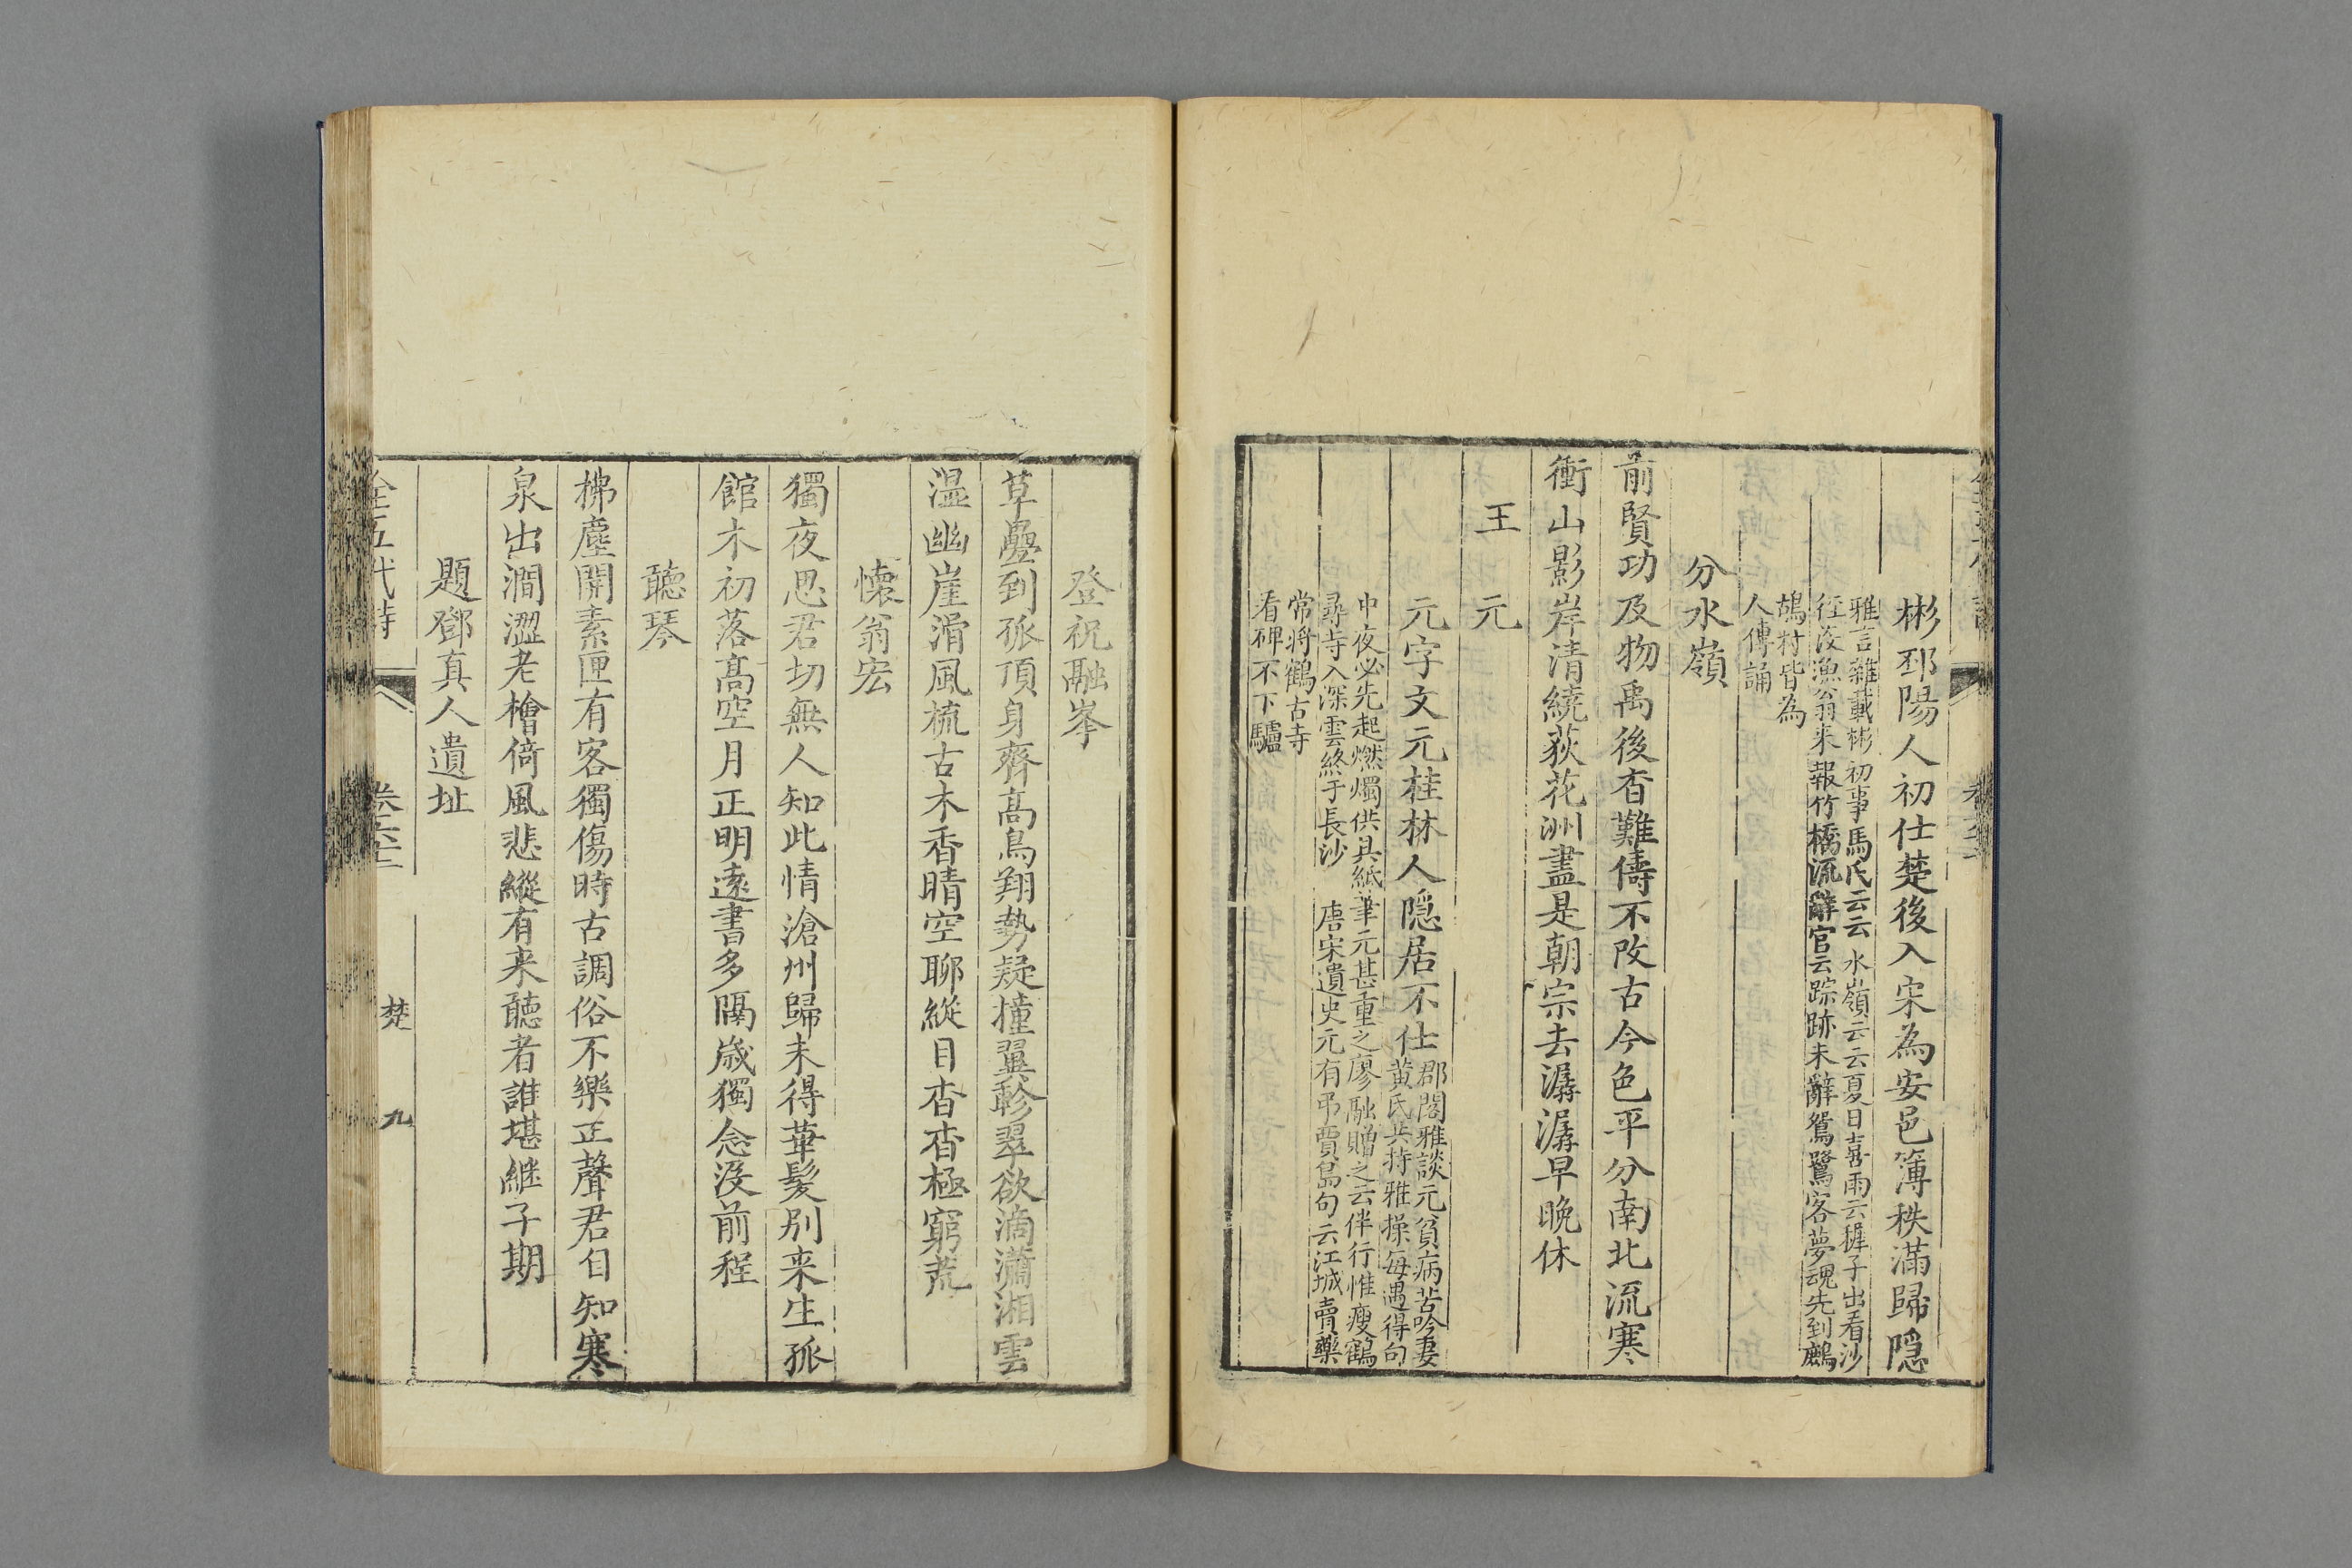 彬邳陽人初仕楚後入宋為安邑簿秩滿歸隱
雅言雜載彬初事馬氏云云水嶺云云夏日喜雨云穉子出看沙
徑沒漁翁来報竹橋流辭官云踪跡未辭鴛鷺客夢魂先到鷓
鴣村皆為
人傳誦
分水嶺
前賢功及物禹後杳難儔不改古今色平分南北流寒
衝山影岸清繞荻花洲盡是朝宗去潺潺早晚休
王元
元字文元桂林人隱居不仕
郡閣雅談元貧病苦吟妻
黃氏共持雅操每遇得句
中夜必先起燃燭供具紙筆元甚重之廖融贈之云伴行惟瘦鶴
尋寺入深雲終于長沙 唐宋遺史元有弔賈島句云江城賣藥
常將鶴古寺
看碑不下驢
登祝融峯
草疊到孤頂身齊高鳥翔勢疑撞翼軫翠欲滴瀟湘雲
湿幽崖滑風梳古木香晴空聊縱目杳杳極窮荒
懷翁宏
獨夜思君切無人知此情滄州歸未得華髮別来生孤
館木初落高空月正明遠書多隔歲獨念沒前程
聽琴
拂塵開素匣有客獨傷時古調俗不樂正聲君自知寒
泉出澗澀老檜倚風悲縱有来聽者誰堪継子期
題鄧真人遺址
全五代詩 楚 九